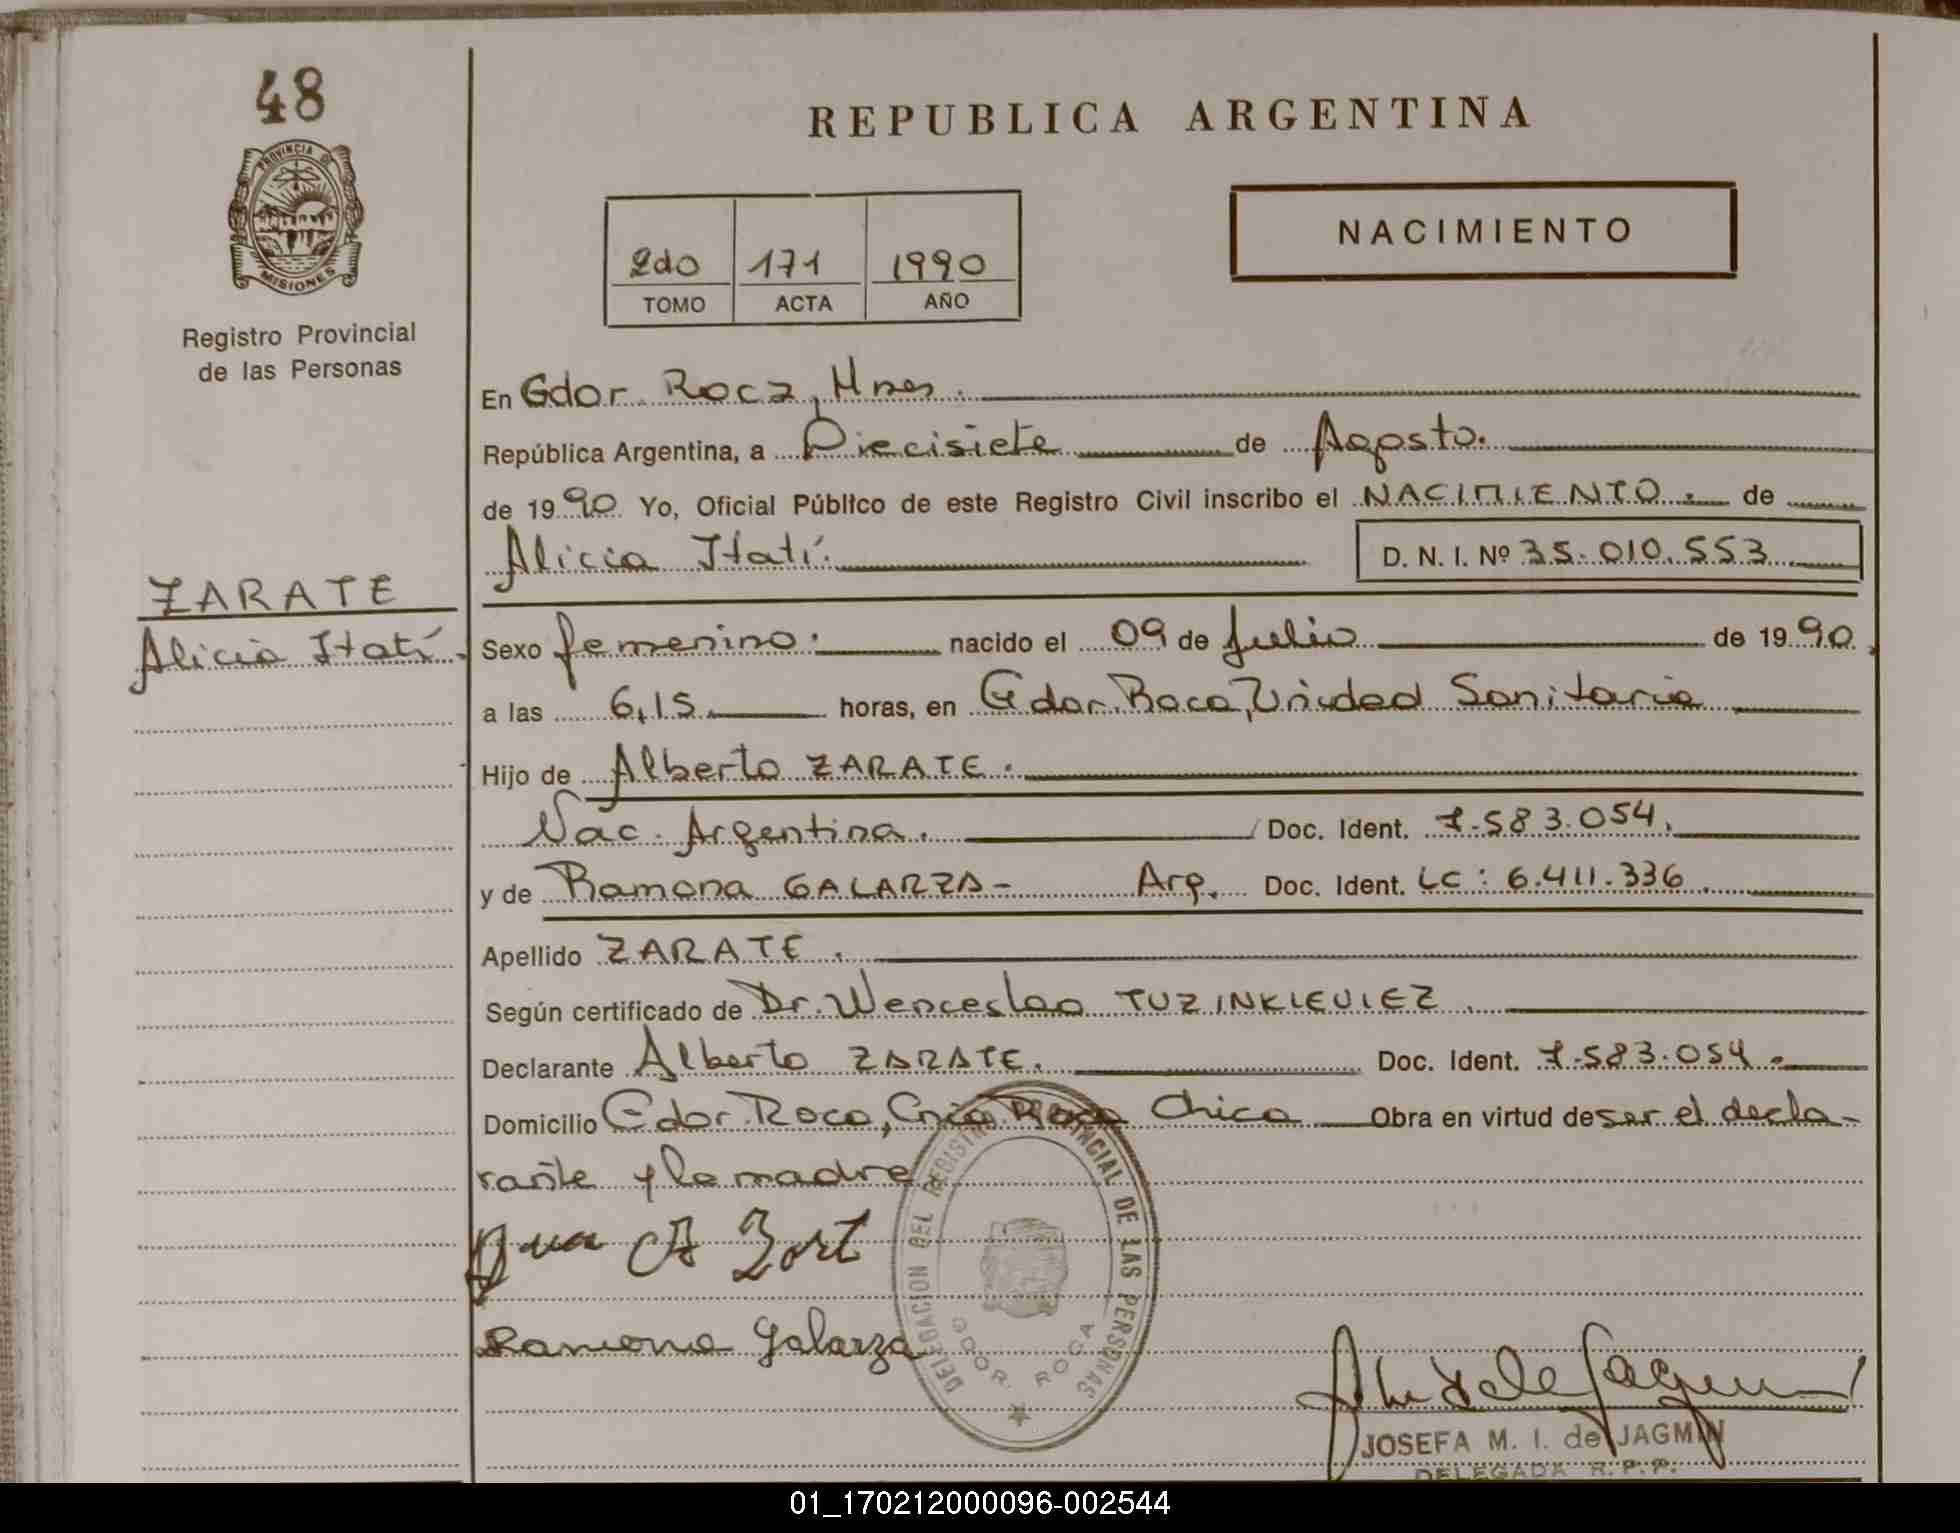 48
PROVINCIA DE
MISIONES
Registro Provincial
de las Personas
ZARATE
Alicia Itatí.
REPUBLICA ARGENTINA
2do 171 1990
TOMO ACTA AÑO
NACIMIENTO
En Gdor. Roca, Mnes.
República Argentina, a Diecisiete de Agosto.
de 1990 Yo, Oficial Público de este Registro Civil inscribo el NACIMIENTO. de
Alicia Itatí. D. N. I. Nº 35.010.553
Sexo femenino. nacido el 09 de Julio de 1990.
a las 6,15 horas, en Gdor. Roca, Unidad Sanitaria
Hijo de Alberto ZARATE.
Nac. Argentina. Doc. Ident. 7.583.054.
y de Ramona GALARZA- Arg. Doc. Ident. LC: 6.411.336
Apellido ZARATE.
Según certificado de Dr. Wenceslao TUZINKIEVIEZ.
Declarante Alberto ZARATE. Doc. Ident. 7.583.054.
Domicilio Gdor. Roca, Cnia Roca Chica Obra en virtud de ser el decla-
rante y la madre
Ramona Galarza
DELEGACION DEL REGISTRO PROVINCIAL DE LAS PERSONAS
GDOR. ROCA
JOSEFA M. I. de JAGMIN
DELEGADA R.P.P.
01_170212000096-002544